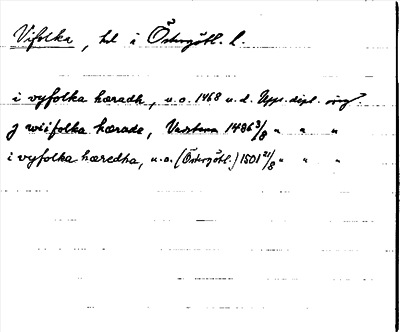 Vifolka, hd i Östergötl. l.
i vyfolka hæradh, u.o. 1468 u.d. Upps. dipl. orig.
j wiifolka hærade, Vastena 1486 3/8 " " "
i vyfolka hæredha, u.o. (Östergötl.) 1501 21/8 " " "